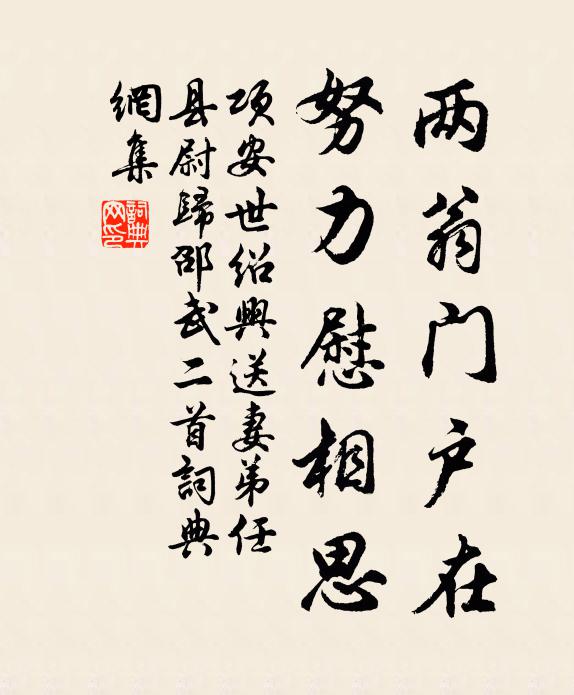 两翁门户在
努力慰相思
项安世绍興送妻弟任
县尉歸邵武二首詞典
網集
詞典
网印